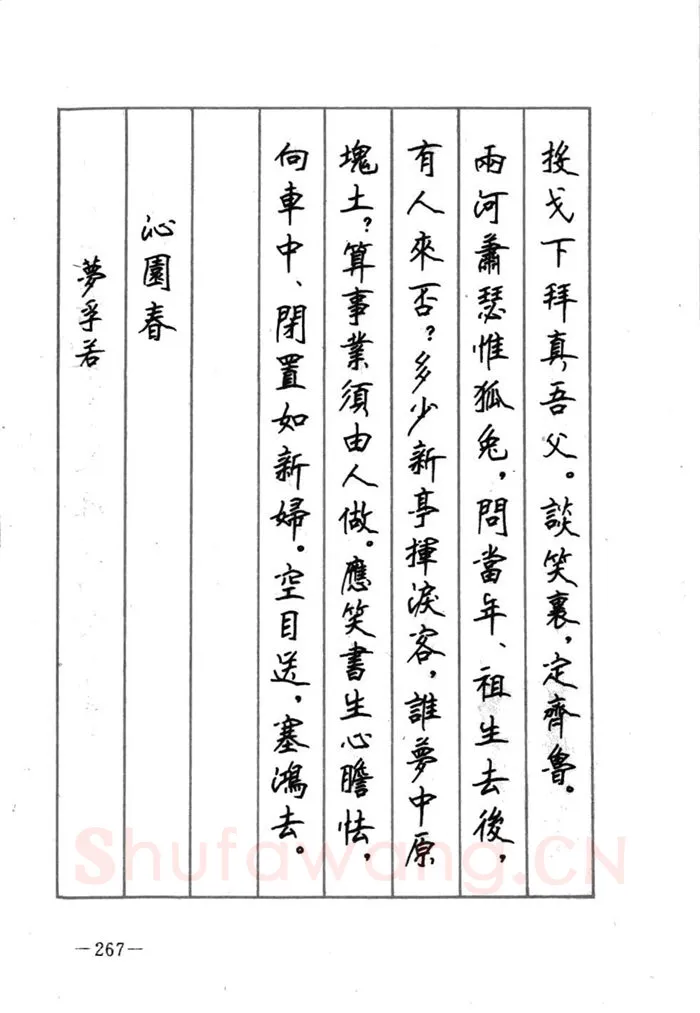 投戈下拜真吾父。談笑裏，定齊魯。
兩河蕭瑟惟狐兔，問當年、祖生去後，
有人來否？多少新亭揮淚客，誰夢中原
塊土？算事業須由人做。應笑書生心膽怯，
向車中、閉置如新婦。空目送，塞鴻去。
沁園春
夢孚若
—267—
Shufawang.CN